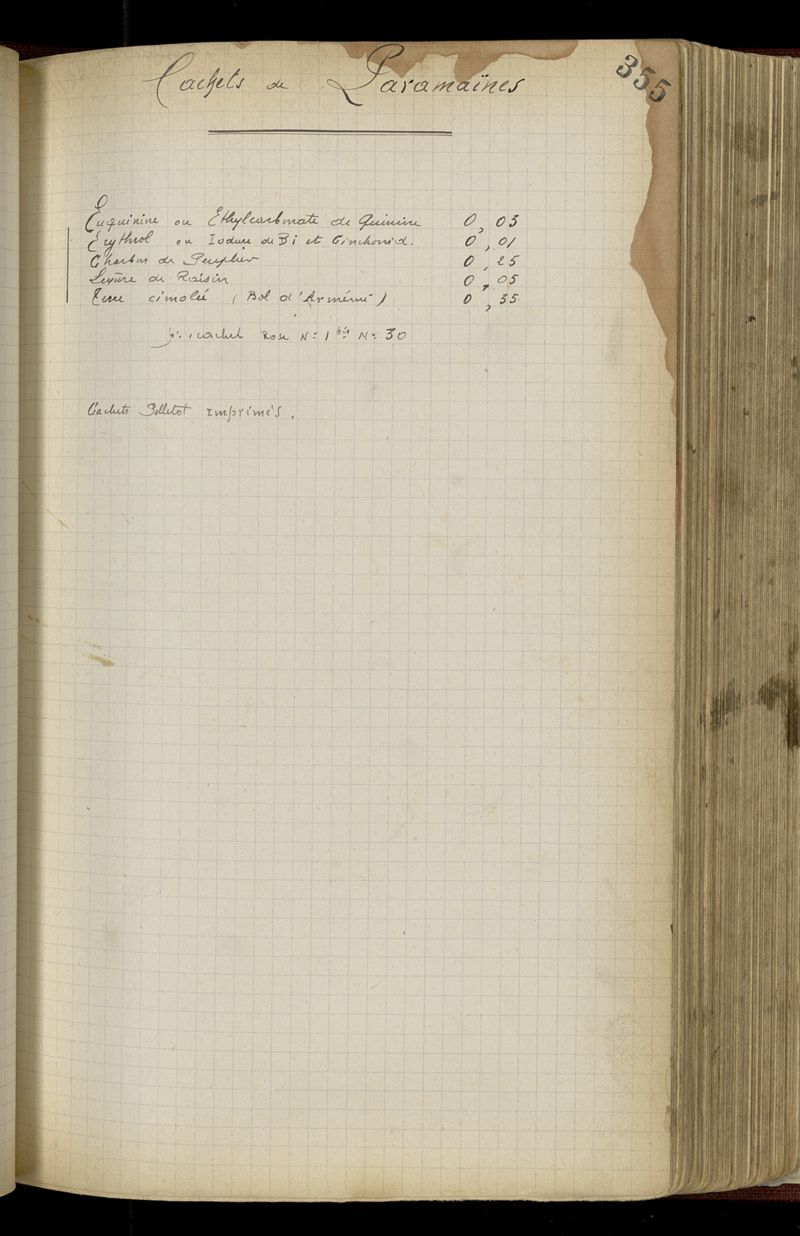 355
Cachets de Paramaïnes
Euquinine ou Ethylcarbonate de Quinine 0,03
Erythrol ou Iodure de Bi et Cinchonid. 0,01
Charbon de Peuplier 0,25
Levûre de Raisin 0,05
Terre cimolée (Bol d'Arménie) 0,35
p. 1 cachet Rose N: 1 bis Nr. 30
Cachets Pelletot imprimés.